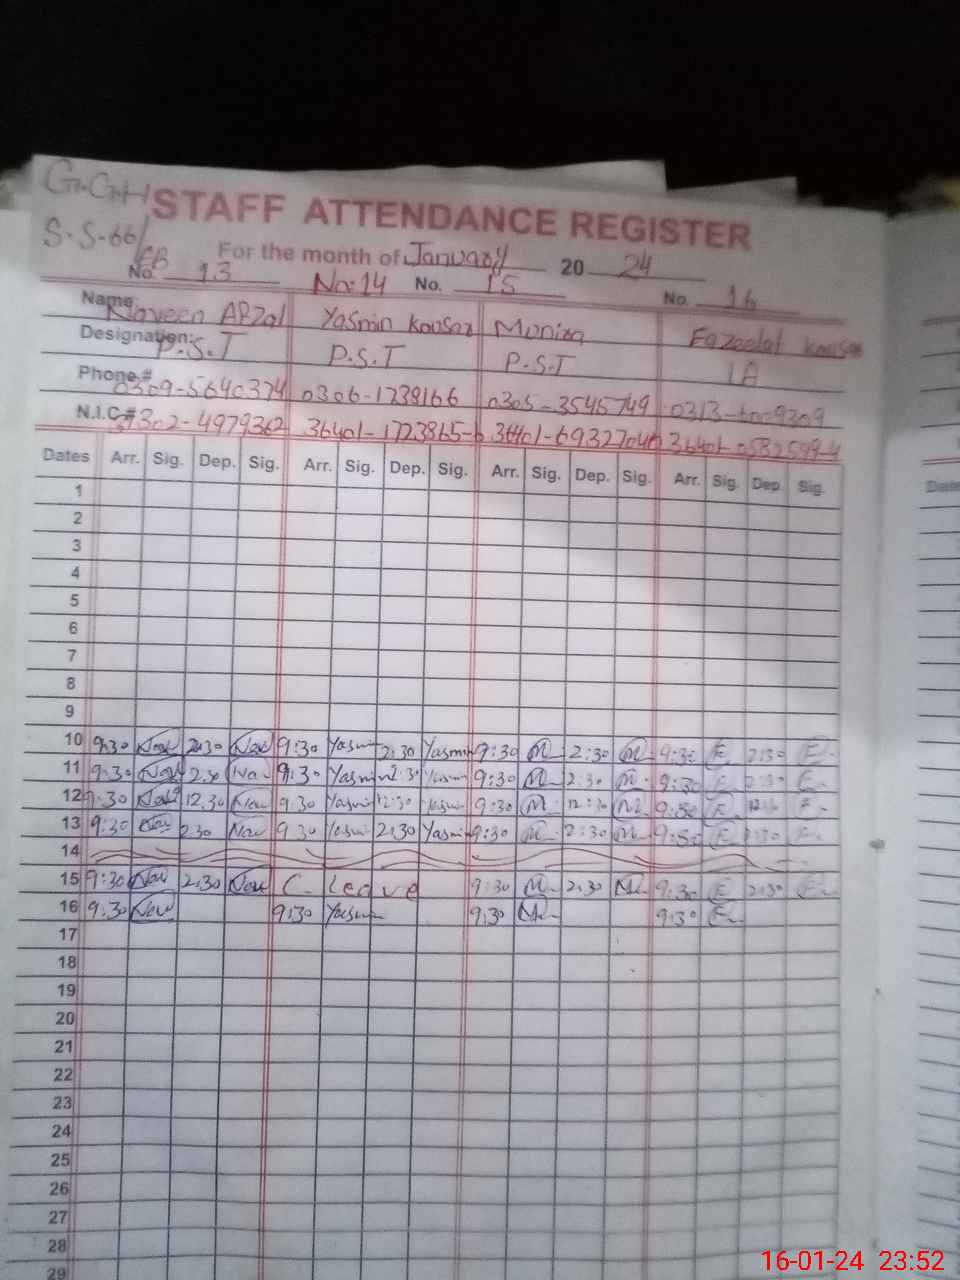 G.G.H
STAFF ATTENDANCE REGISTER
S.S-66/EB
For the month of January 20 24
No. 13 No: 14 No. 15 No. 16
Name: Naveen Afzal Yasmin Kousar Munira Fazeelat Kousar
Designation: P.S.T P.S.T P.S.T IA
Phone # 0309-5640374 0306-1738166 0305-3545749 0313-
N.I.C# 302-4979362 36401-1723865-6 36401-6932704
Dates Arr. Sig. Dep. Sig. Arr. Sig. Dep. Sig. Arr. Sig. Dep. Sig. Arr. Sig. Dep. Sig.
1
2
3
4
5
6
7
8
9
10 9:30 Nav 2:30 Nav 9:30 Yasmin 2:30 Yasmin 9:30 M 2:30 M 9:30 F 2:30 F
11 9:30 Nav 2:30 Nav 9:30 Yasmin 2:30 Yasmin 9:30 M 2:30 M 9:30 F 2:30 F
12 9:30 Nav 12:30 Nav 9:30 Yasmin 12:30 Yasmin 9:30 M 12:30 M 9:30 F F
13 9:30 Nav 2:30 Nav 9:30 Yasmin 2:30 Yasmin 9:30 M 2:30 M 9:30 F 2:30 F
14
15 9:30 Nav 2:30 Nav C. Leave 9:30 M 2:30 M 9:30 F 2:30 F
16 9:30 Nav 9:30 Yasmin 9:30 M 9:30 F
17
18
19
20
21
22
23
24
25
26
27
28
29
16-01-24 23:52